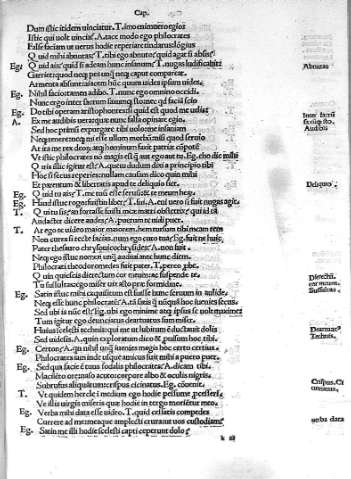 Cap.
Dum istic itidem uinciatur. T. immo enimuero ego
Istic qui uolt uinciat. A. tace modo ego philocrates
Falsa faciam ut uerus hodie reperiare tindarus
Q uid mihi abnutas? T. tibi ego abnuto? quid agat si absis
Eg: Q uid ais? quid si adeam hunc insanum? T. nugas ludificabit
Garriet quod neq; pes unq; neq; caput compareat.
Ornamenta absunt: aiacem hūc quum uides ipsum uides.
Eg. Nihil facio: tamen adibo. T. nunc ego omnino occidi.
Nunc ego inter sacrum saxumq; sto: nec qd faciā scio
Eg. Do tibi operam aristophontes si quid est quod me uelis
A. Ex me audibis uera quæ nunc falsa opinare ego.
Sed hoc primum expurgare tibi uolo: me insaniam
Neq; tenere neq; mi esse ullum morbū nisi quod seruio
At ita me rex deoꝝ atq; hominum faxit patriæ cōpotē
Vt istic philocrates non magis est q̄ aut ego aut tu. Eg. eho dic mihi
Q uis illic igitur est? A. quem dudum dixi a principio tibi
Hoc si secus reperies nullam causam dico quin mihi
Et parentum & libertatis apud te deliquio siet.
Eg. Q uid tu ais? T. me tuū esse seruū: & te meum herū.
Eg. Haud istuc rogo: fuistin liber? T. fui. A. eni uero nō fuit nugas agit.
T. Q ui tu scis? an tu fortasse fuisti meæ matri obstetrix: quid id
Audacter dicere audes? A. puerum te uidi puer.
T. At ego te uideo maior maiorem. hem rursum tibi
Non curas si recte facias. num ego curo tuas? Eg. fuitne huic
Pater thesaurochrysonicochrysides? A. non fuit
Neq; ego istuc nomen unq̄ audiui ante hunc diem.
Philocrati theodoromedes fuit pater. T. pereo probe.
Q uin quiescis dierectum cor meum: ac suspende te
Tu sussultas: ego miser uix asto præ formidine.
Eg. Satin istuc mihi exquisitum est fuisse hunc seruum in alide
Neq; esse hunc philocratē? A. tā satis
Sed ubi is nunc est? Eg. ubi ego minime atq; ipsus se uolt maxime
Tum igitur ego deruncinatus deartuatus sum miser.
Huius scelesti technis qui me ut lubitum ē ductauit dolis
Sed uide sis. A. quin exploratum dico & prouisum hoc tibi.
Eg. Certon? A.
Philocrates iam inde usque amicus fuit mihi a puero puer.
Eg. Sed qua facie ē tuus sodalis philocrates? A. dicam tibi.
Macilēto ore naso acuto corpore albo & oculis nigris.
Subrufus aliquātum: crispus cicinatus. Eg. cōuenit.
T. Vt quidem hercle in medium ego hodie pessume processeri
Væ illis uirgis miseris quæ hodie in tergo moriētur meo.
Eg. Verba mihi data esse uideo. T. quid cessatis compedes
Currere ad me meaque amplecti crura ut uos custodiam?
Eg. Satin me illi hodie scelesti capti ceperunt dolo?
Abnutas
Audibis
Deliquio.
Crispus. Ci
cinnatus.
uerba data